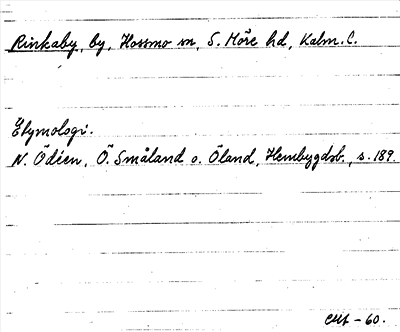 Rinkaby, by, Hossmo sn, S. Möre hd, Kalm. l.
Etymologi.
N. Ödéen, Ö. Småland o. Öland, Hembygdsb., s. 189.
– 60.